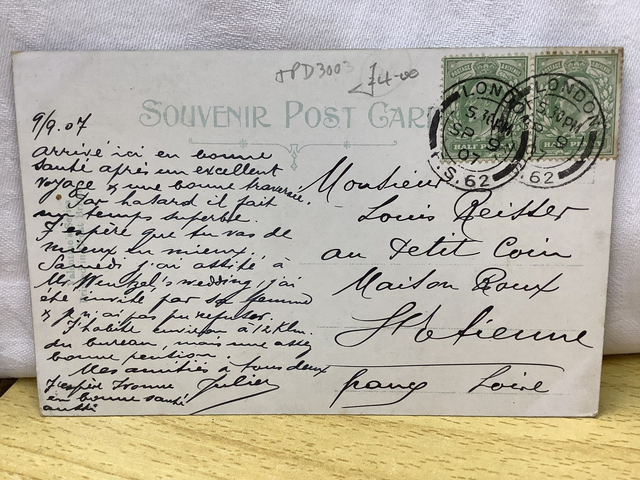 JPD3003 £4-00
SOUVENIR POST CARD
9/9.07
Arrivé ici en bonne
santé après un excellent
voyage & une bonne traversée.
Par hasard il fait
un temps superbe.
J'espère que tu vas de
mieux en mieux.
Samedi j'ai assité à
Mr Wentzel's wedding, j'ai
été invité par sa femme
& je n'ai pas pu refuser.
J'habite environ à 12 Klm.
du bureau, mais une assez
bonne pension.
Mes amitiés à tous deux
Julien
J'espère Yvonne
en bonne santé
aussi
Monsieur
Louis Reisser
au Petit Coin
Maison Roux
St Etienne
Loire
LONDON
5.10PM
SP 9
07
F.S.62
LONDON
62
HALF PENNY